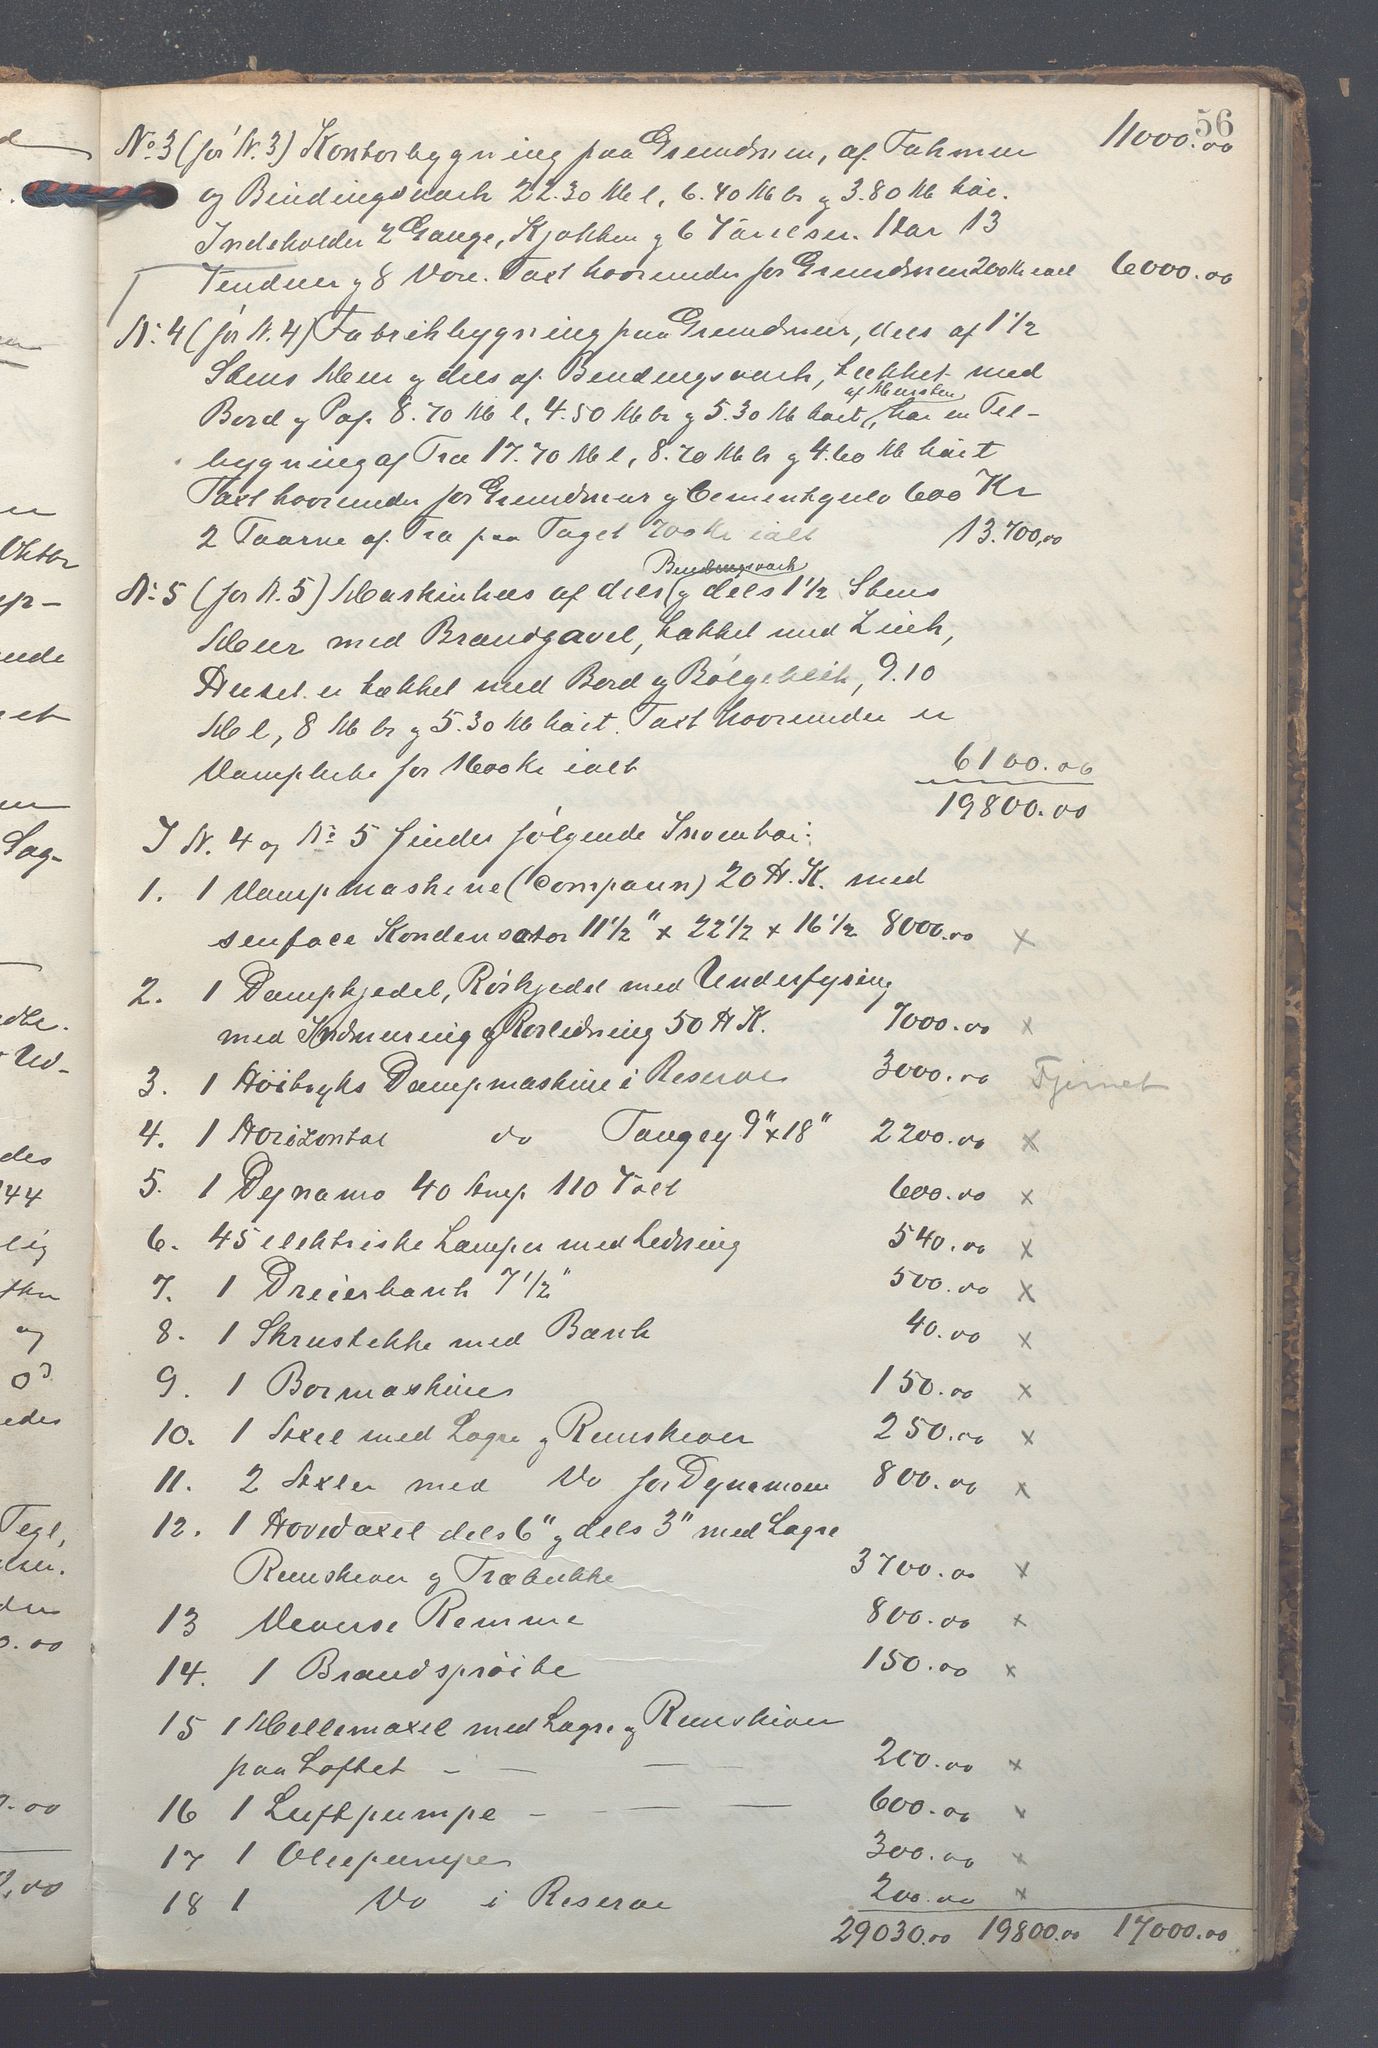 56
11000.00
No 3 (før N. 3) Kontorbygning paa Grundmur, af Tømmer
og Bindingsværk 22.30 M l, 6.40 M br og 3.80 M høi.
Indeholder 2 Gange, Kjøkken og 6 Værelser. Har 13
Vinduer og 8 Døre. Taxt hvorunder for Grundmur 200 Kr ialt 6000.00
No 4 (før N. 4) Fabrikbygning paa Grundmur, dels af 1 1/2
Stens Mur og dels af Bindingsværk, tækket med
af Mursten
Bord og Pap. 8.70 M l, 4.50 M br og 5.30 M høit, har en Til-
bygning af Træ 17.70 M l, 8.70 M br og 4.60 M høit
Taxt hvorunder for Grundmur og Cementgulv 600 Kr
2 Taarne af Træ paa Taget 700 Kr ialt 13.700,00
Bindingsværk
No 5 (før N. 5) Maskinhus af dels og dels 1 1/2 Stens
Mur med Brandgavel, tækket med Zink,
Huset er tækket med Bord og Bølgeblik, 9.10
M l, 8 M br og 5.30 M høit. Taxt hvorunder er
for 1600 Kr ialt 6100.00
19800.00
I N. 4 og No 5 findes følgende Inventar:
1. 1 Dampmaskine (Compaun) 20 H.K. med
surface Kondensator 11 1/2" x 22 1/2 x 16 1/2 8000.00 x
2. 1 Dampkjedel, Rørkjedel med Underfyring
med Indmuring og Rørledning 50 H K. 7000.00 x
3. 1 Høitryks Dampmaskine i Reserve 3000.00 Fjernet
4. 1 Horizontal do Tangey 9" x 18" 2200.00 x
5. 1 Dynamo 40 Amp 110 Volt 600.00 x
6. 45 elektriske Lamper med Ledning 540.00 x
7. 1 Dreierbænk 7 1/2" 500.00 x
8. 1 Skrustikke med Bænk 40.00 x
9. 1 Bormaskine 150.00 x
10. 1 Axel med Lagre og Remskiver 250.00 x
11. 2 Axler med Do for Dynamoen 800.00 x
12. 1 Hovedaxel dels 6" og dels 3" med Lagre
Remskiver og Træbukke 3700.00 x
13 Diverse Remme 800.00 x
14. 1 Brandsprøite 150.00 x
15 1 Mellemaxel med Lagre og Remskiver
paa Loftet - — — — 200.00 x
16 1 Luftpumpe - — — — 600.00 x
17 1 Oliepumpe 300.00 x
18 1 Do i Reserve 200.00 x
29030.00 19800.00 17000.00